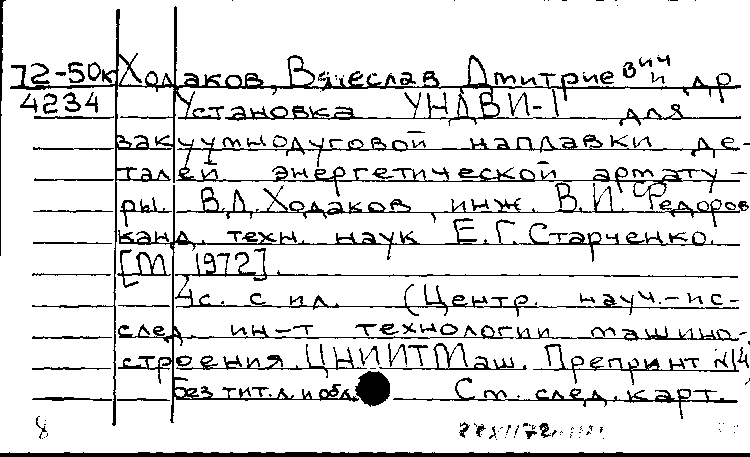 72-50к Ходаков, Вячеслав Дмитриевич и др
4234 Установка УНДВИ-1 для
вакуумнодуговой наплавки де-
талей энергетической армату-
ры. В.Д. Ходаков, инж. В.И. Федоров
канд. техн. наук Е.Г. Старченко.
[М 1972].
4с. с ил. (Центр. науч.-ис-
след. ин-т технологии машино-
строения. ЦНИИТМаш. Препринт №14
Без тит. л. и обл. Ст. след. карт.
8